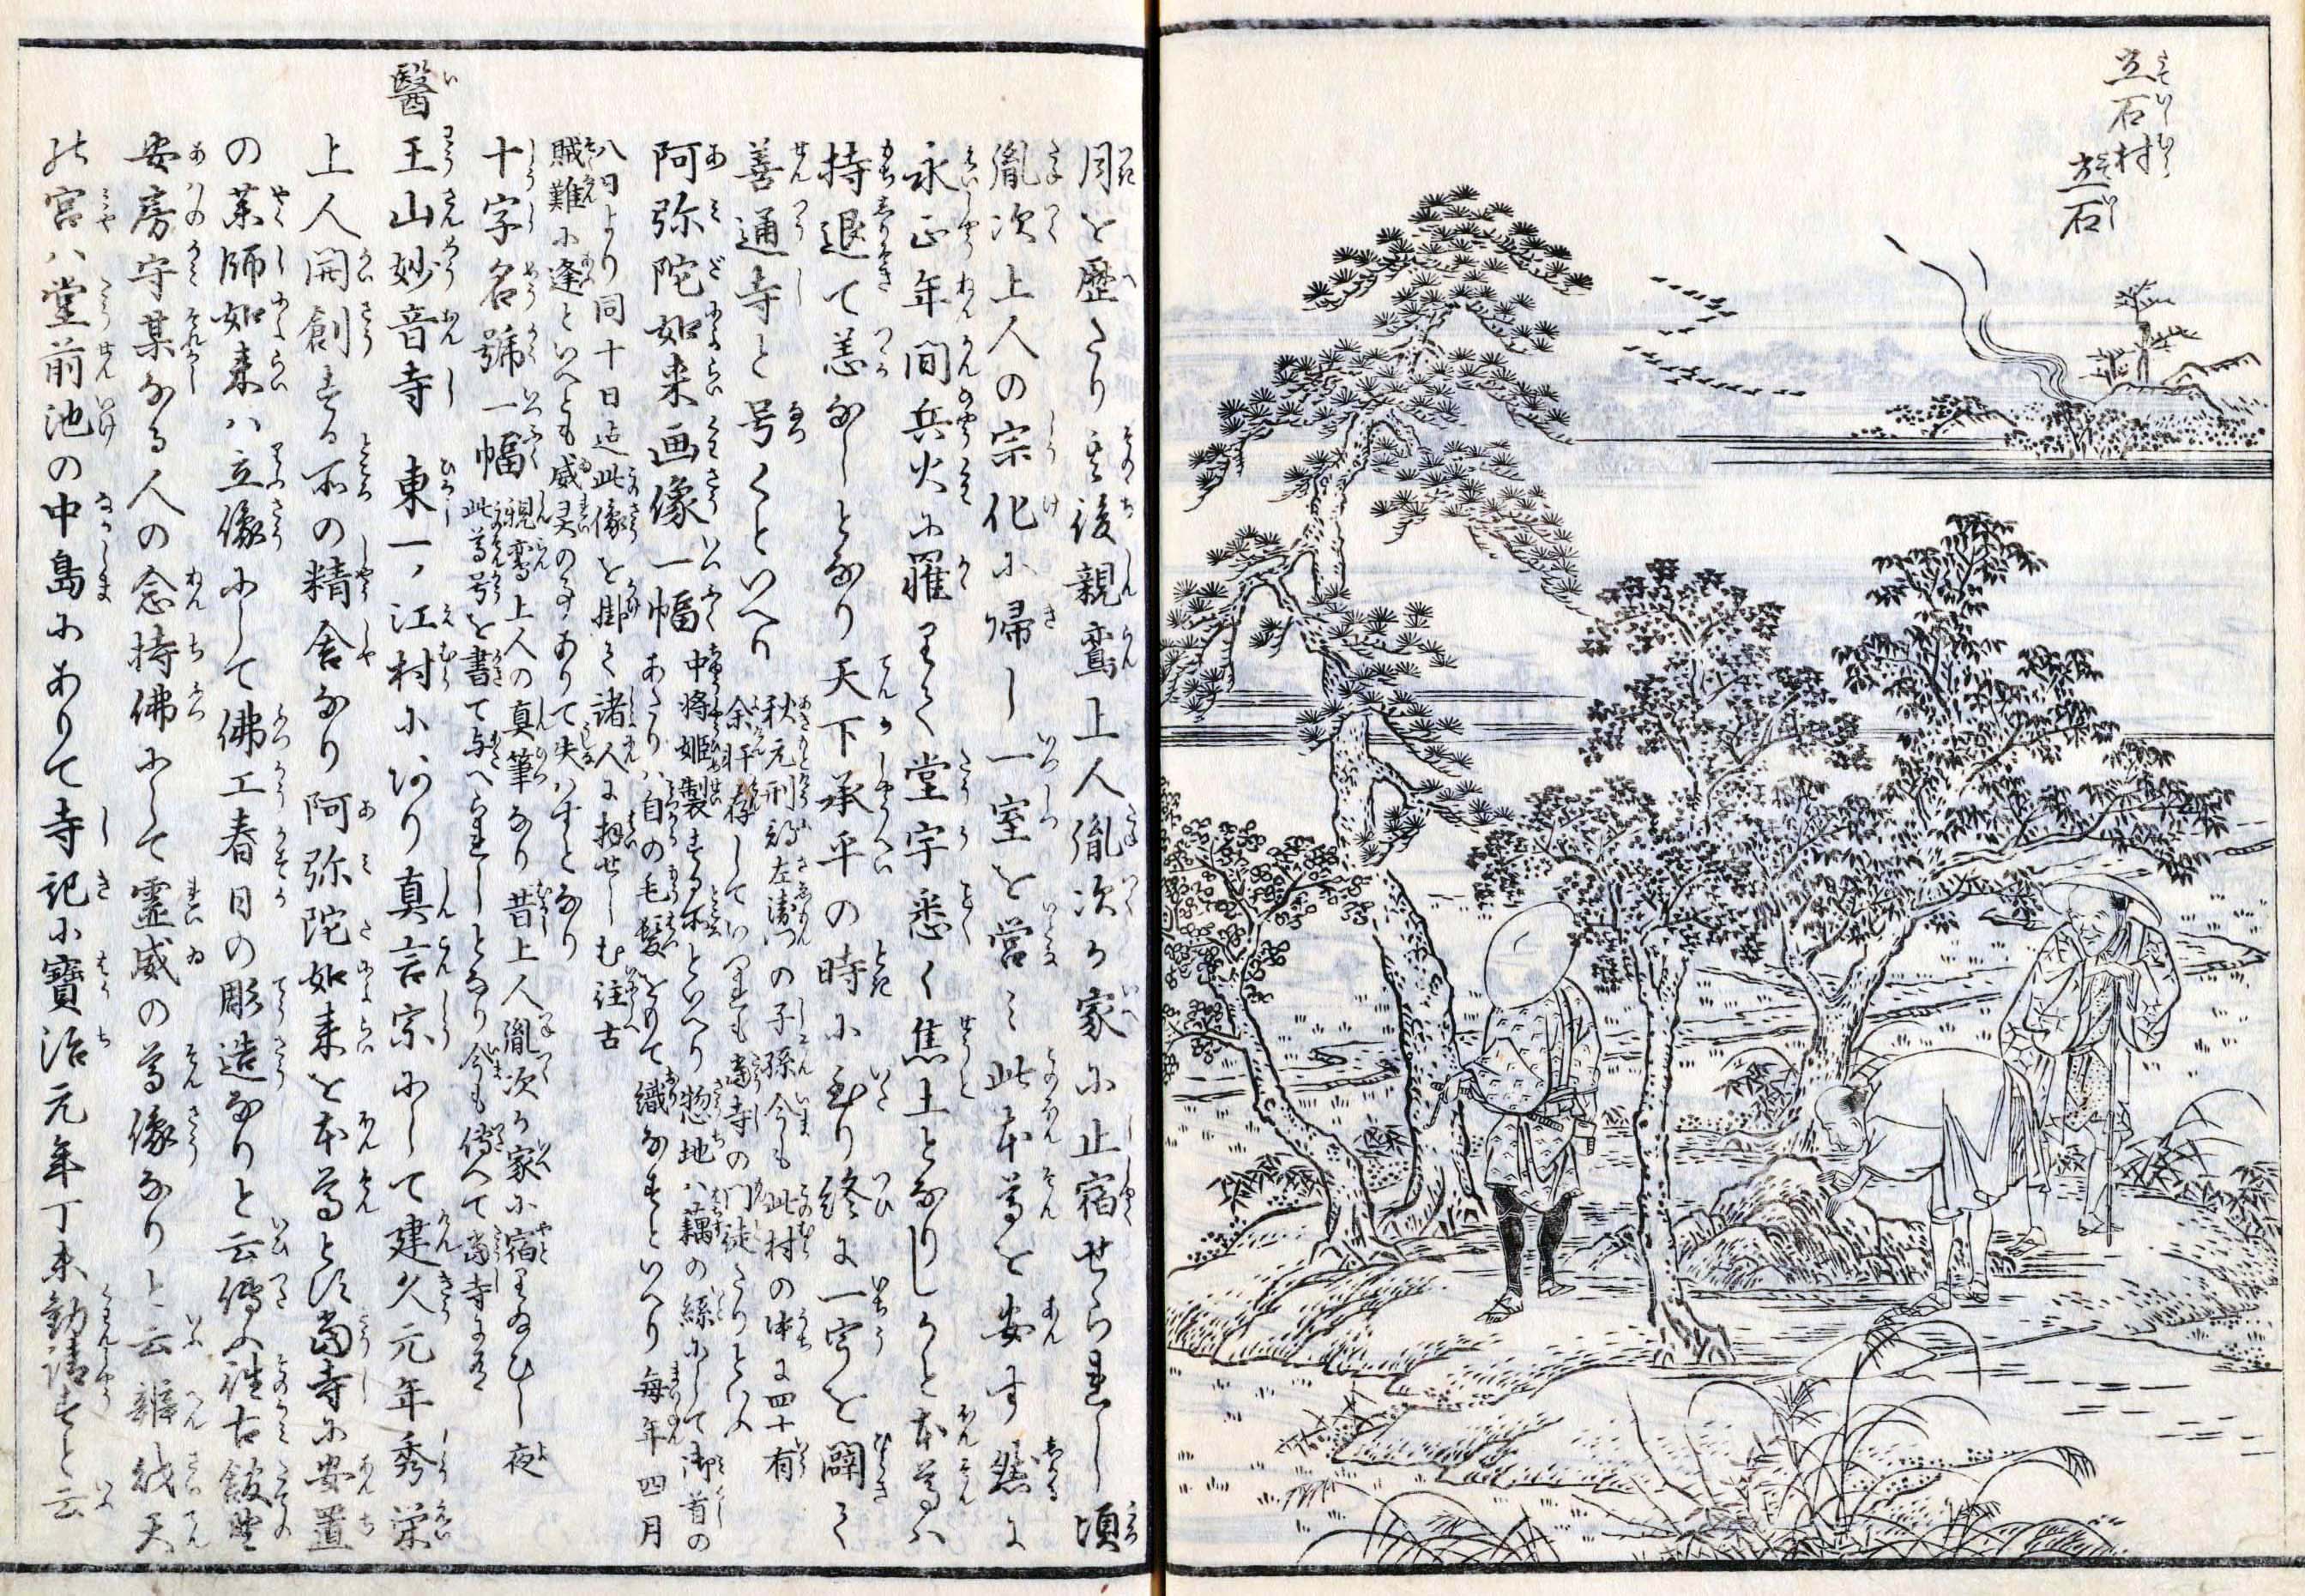 立石村
立石
月を歴たり其後親鸞上人胤次か家に止宿せられし頃
胤次上人の宗化に帰し一室を営み此本尊を安す然に
永正年間兵火に罹りて堂宇悉く焦土となりしかと本尊ハ
持退て恙なしとなり天下承平の時に至り終に一宇を闢き
善通寺と号くといへり
秋元刑部左衛門の子孫今も此村の中に四十有
余軒存していつれも当寺の門徒たりといふ
阿弥陀如来画像一幅
中将姫製する所といへり惣地ハ藕の絲にして御首の
あたりハ自の毛髪をもて織なすといへり毎年四月
八日より同十日迄此像を掛て諸人に拝せしむ往古
賊難に逢といへとも威灵の事ありて失ハすとなり
十字名號一幅
親鸞上人の真筆なり昔上人胤次か家に宿りゐひし夜
此尊号を書て与へられしとなり今も傳へて当寺に有
醫王山妙音寺 東一ノ江村にあり真言宗にして建久元年秀栄
上人開創する所の精舎なり阿弥陀如来を本尊とす当寺に安置
の薬師如来ハ立像にして佛工春日の彫造なりと云傳ふ往古舘野
安房守某なる人の念持佛にして霊威の尊像なりと云辨財天
の宮ハ堂前池の中島にありて寺記に寶治元年丁未勧請すと云